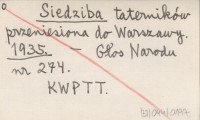 Siedziba taterników
przeniesiona do Warszawy.
1935. — Głos Narodu
nr 274.
KWPTT.